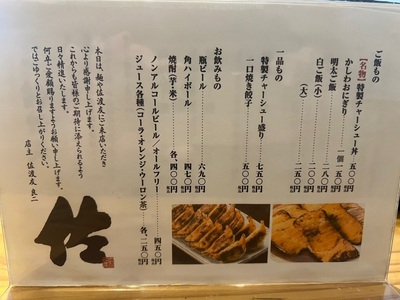 ご飯もの
【名物】特製チャーシュー丼 五〇〇円
かしわおにぎり 一個 一五〇円
明太ご飯 二八〇円
白ご飯(小) 二〇〇円
(大) 二五〇円
一品もの
特製チャーシュー盛り 七五〇円
一口焼き餃子 五〇〇円
お飲みもの
瓶ビール 六九〇円
角ハイボール 四七〇円
焼酎(芋・米) 各、四〇〇円
ノンアルコールビール／オールフリー 四五〇円
ジュース各種(コーラ・オレンジ・ウーロン茶) 各、二五〇円
本日は、麺や佐波友にご来店いただき
心より感謝申し上げます。
これからも皆様のご期待に添えれるよう
日々精進いたします。
何卒ご愛顧賜りますようお願い申し上げます。
ではごゆっくりとお召し上がりください。
店主 佐波友 良二
佐